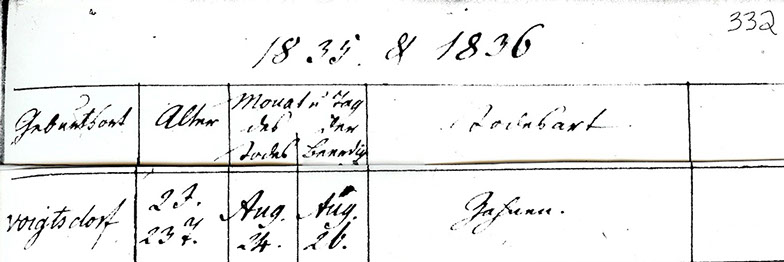 332
1835. & 1836
Geburtsort Alter Monat u Tag Todesart
des der
Todes Beerdig
Voigtsdorf 2 J. Aug. Aug. Zahnen.
23 T. 24. 26.